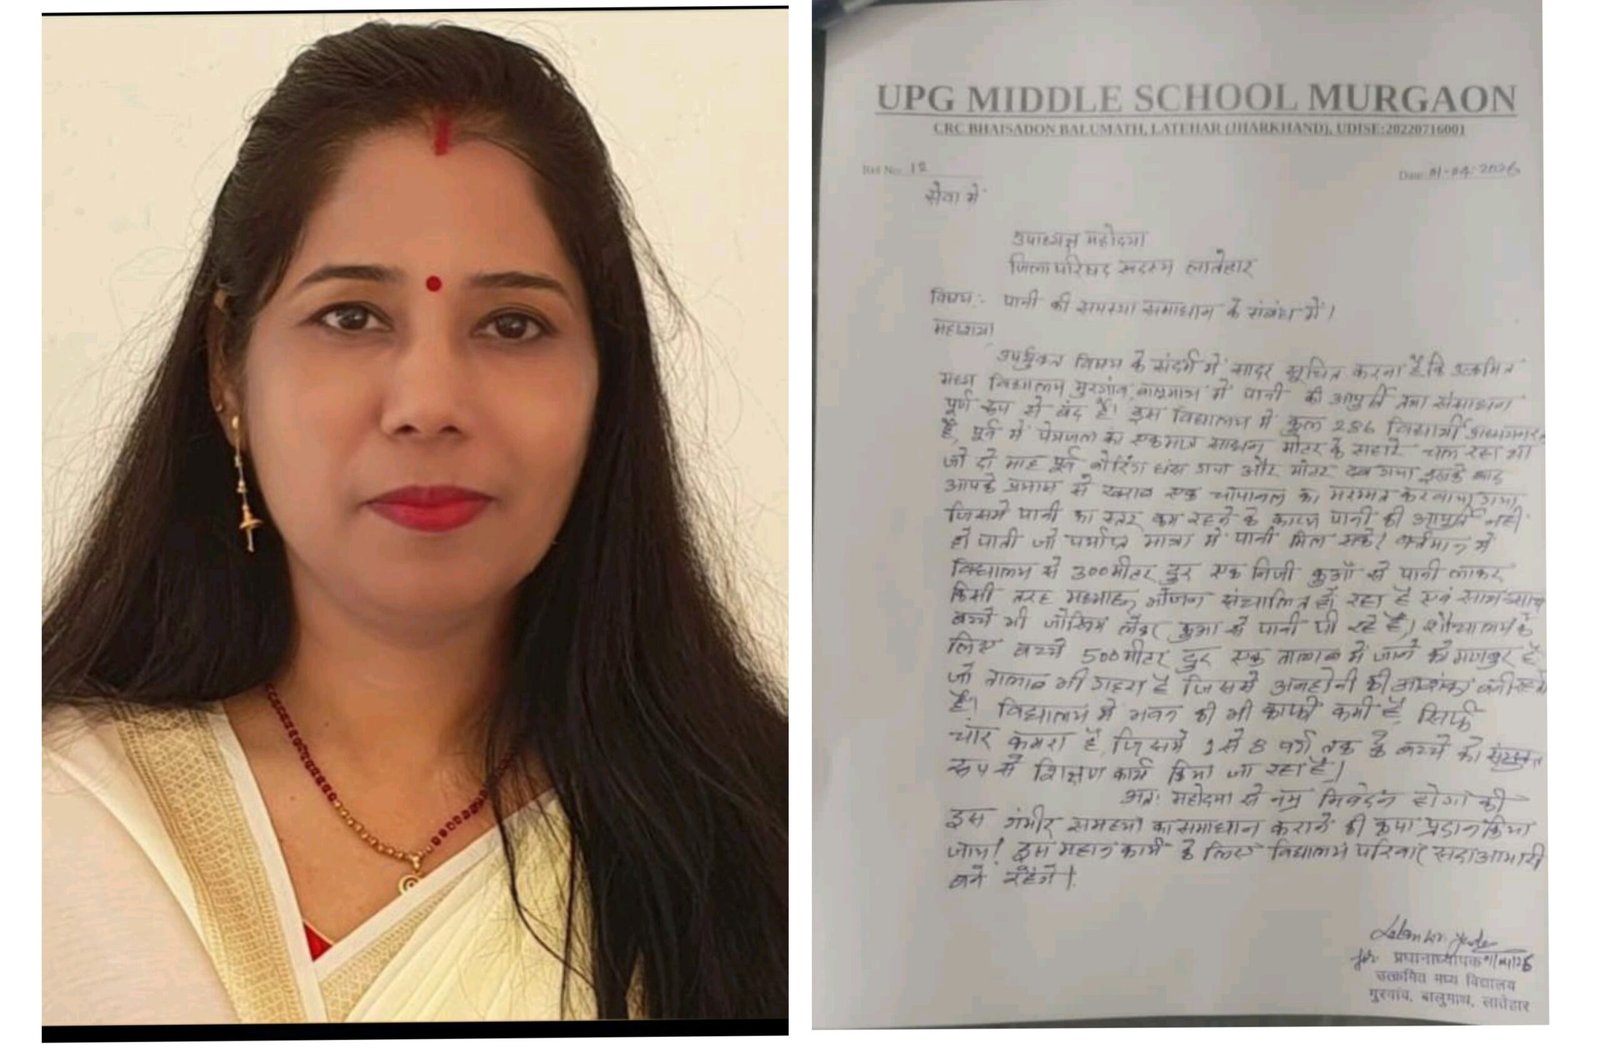 UPG MIDDLE SCHOOL MURGAON
CRC BHAISADON BALUMATH, LATEHAR (JHARKHAND), UDISE:20220716001
Ref No: 12
Date: 01-04-2026
सेवा में
उपाध्यक्ष महोदया
जिला परिषद सदस्य लातेहार
विषय:- पानी की समस्या समाधान के संबंध में।
महाशया
उपर्युक्त विषय के संदर्भ में सादर सूचित करना है कि उत्क्रमित
मध्य विद्यालय मुरगांव, बालूमाथ में पानी की आपूर्ति तथा संसाधन
पूर्ण रूप से बंद है। इस विद्यालय में कुल 286 विद्यार्थी अध्ययनरत
है, पूर्व में पेयजल का एकमात्र साधन मोटर के सहारे चल रहा था
जो दो माह पूर्व बोरिंग धंस गया और मोटर दब गया इसके बाद
आपके प्रयास से खराब एक चापानल का मरम्मत करवाया गया
जिसमें पानी का स्तर कम रहने के कारण पानी की आपूर्ति नहीं
हो पाती जो पर्याप्त मात्रा में पानी मिल सके। वर्तमान में
विद्यालय से 300 मीटर दुर एक निजी कुआँ से पानी लाकर
किसी तरह मध्याहन भोजन संचालित हो रहा है एवं साथ साथ
बच्चे भी जोखिम लेकर कुआ से पानी पी रहे है। शौचालय के
लिए बच्चे 500 मीटर दुर एक तालाब में जाने को मजबुर है
जो तालाब भी गहरा है जिसमें अनहोनी की आशंका बनी रहती
है। विद्यालय में भवन की भी काफी कमी है, सिर्फ
चार कमरा है, जिसमें 1 से 8 वर्ग तक के बच्चे को संयुक्त
रूप से शिक्षण कार्य किया जा रहा है।
अतः महोदया से नम्र निवेदन होगा की
इस गंभीर समस्या का समाधान कराने की कृपा प्रदान किया
जाय। इस महान कार्य के लिए विद्यालय परिवार सदा आभारी
बने रहेंगे।
for प्रधानाध्यापक
उत्क्रमित मध्य विद्यालय
मुरगांव, बालुमाथ, लातेहार